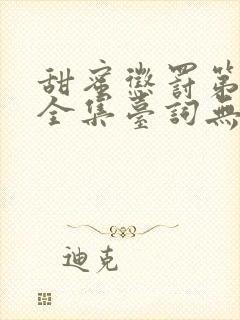 甜蜜懲罰第
全集臺詞無
迪克